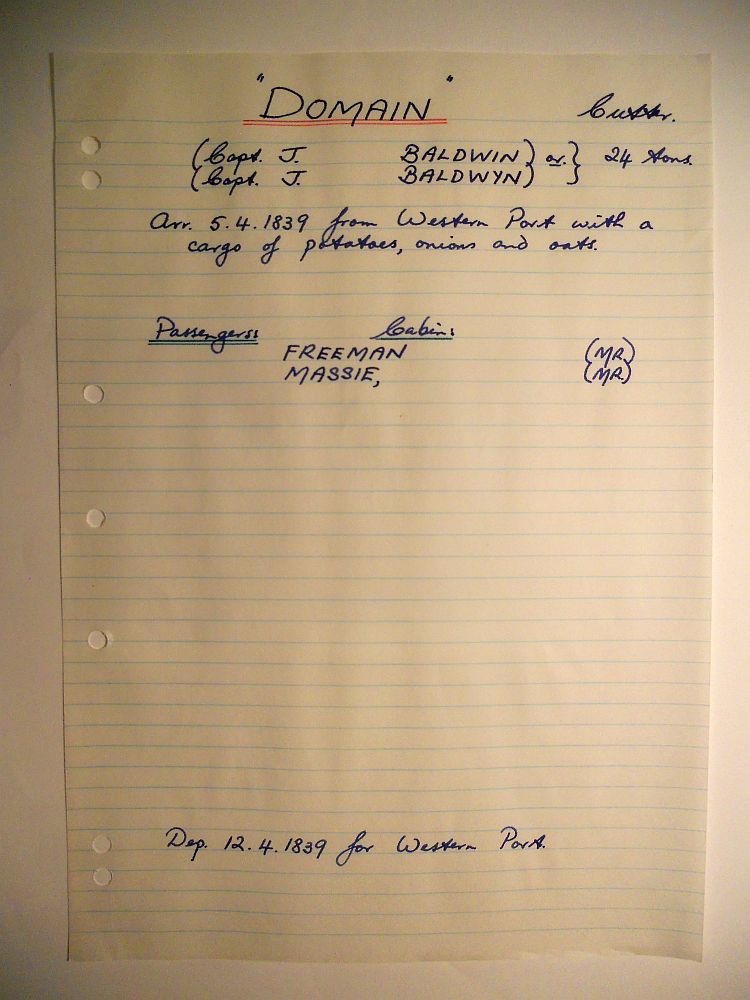 "DOMAIN" Cutter.
(Capt. J. BALDWIN) or } 24 tons.
(Capt. J. BALDWYN) }
Arr. 5.4.1839 from Western Port with a
cargo of potatoes, onions and oats.
Passengers: Cabin:
FREEMAN (MR)
MASSIE, (MR)
Dep. 12.4.1839 for Western Port.